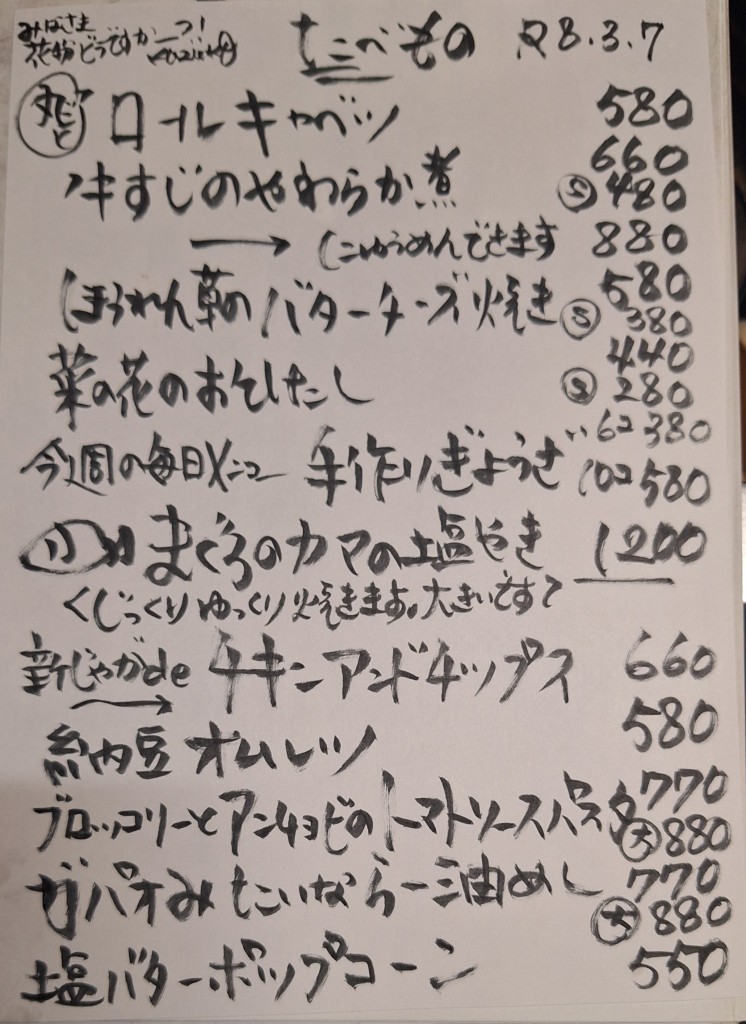 みなさま
花粉どうですかーっ!
たべもの R8.3.7
丸ごと ロールキャベツ 580
牛すじのやわらか煮 660 Ⓢ480
→ にゅうめんできます 880
ほうれん草のバターチーズ焼き 580 Ⓢ380
菜の花のおひたし 440 Ⓢ280
今週の毎日メニュー 手作りぎょうざ 6コ380 10コ580
まぐろのカマの塩やき 1200
くじっくりゆっくり焼きます。大きいです>
新じゃがde チキンアンドチップス 660
→
納豆オムレツ 580
ブロッコリーとアンチョビのトマトソースパスタ 770 大880
ガパオみたいなラー油めし 770 大880
塩バターポップコーン 550